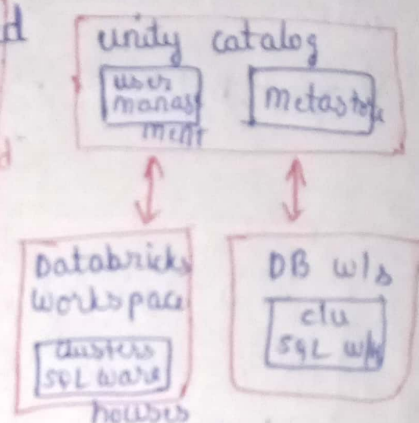 d
unity catalog
user
manag
ment
metastore
d
Databricks
workspace
clusters
SQL ware
houses
DB w/s
clu
SQL w/h